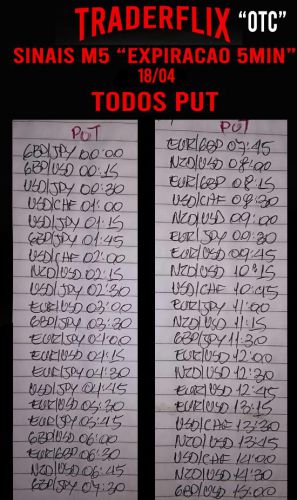 TRADERFLIX "OTC"
SINAIS M5 "EXPIRACAO 5MIN"
18/04
TODOS PUT
PUT
GBP/JPY 00:00
GBP/USD 00:15
USD/JPY 00:30
USD/CHF 01:00
USD/JPY 01:15
GBP/JPY 01:45
USD/CHF 02:00
NZD/USD 02:15
USD/JPY 02:30
EUR/USD 03:00
GBP/JPY 03:30
EUR/JPY 04:00
EUR/USD 04:15
EUR/JPY 04:30
USD/JPY 04:45
EUR/USD 05:30
EUR/JPY 05:45
GBP/USD 06:00
EUR/GBP 06:30
NZD/USD 06:45
GBP/JPY 07:30
PUT
EUR/GBP 07:45
NZD/USD 08:00
EUR/GBP 08:15
USD/CHF 08:30
NZD/USD 09:00
EUR/JPY 09:30
EUR/USD 09:45
NZD/USD 10:15
USD/CHF 10:45
EUR/JPY 11:00
NZD/USD 11:15
GBP/JPY 11:30
EUR/USD 12:00
NZD/USD 12:30
EUR/USD 12:45
EUR/USD 13:15
USD/CHF 13:30
NZD/USD 13:45
USD/CHF 14:00
NZD/USD 14:30
GBP/USD 15:00